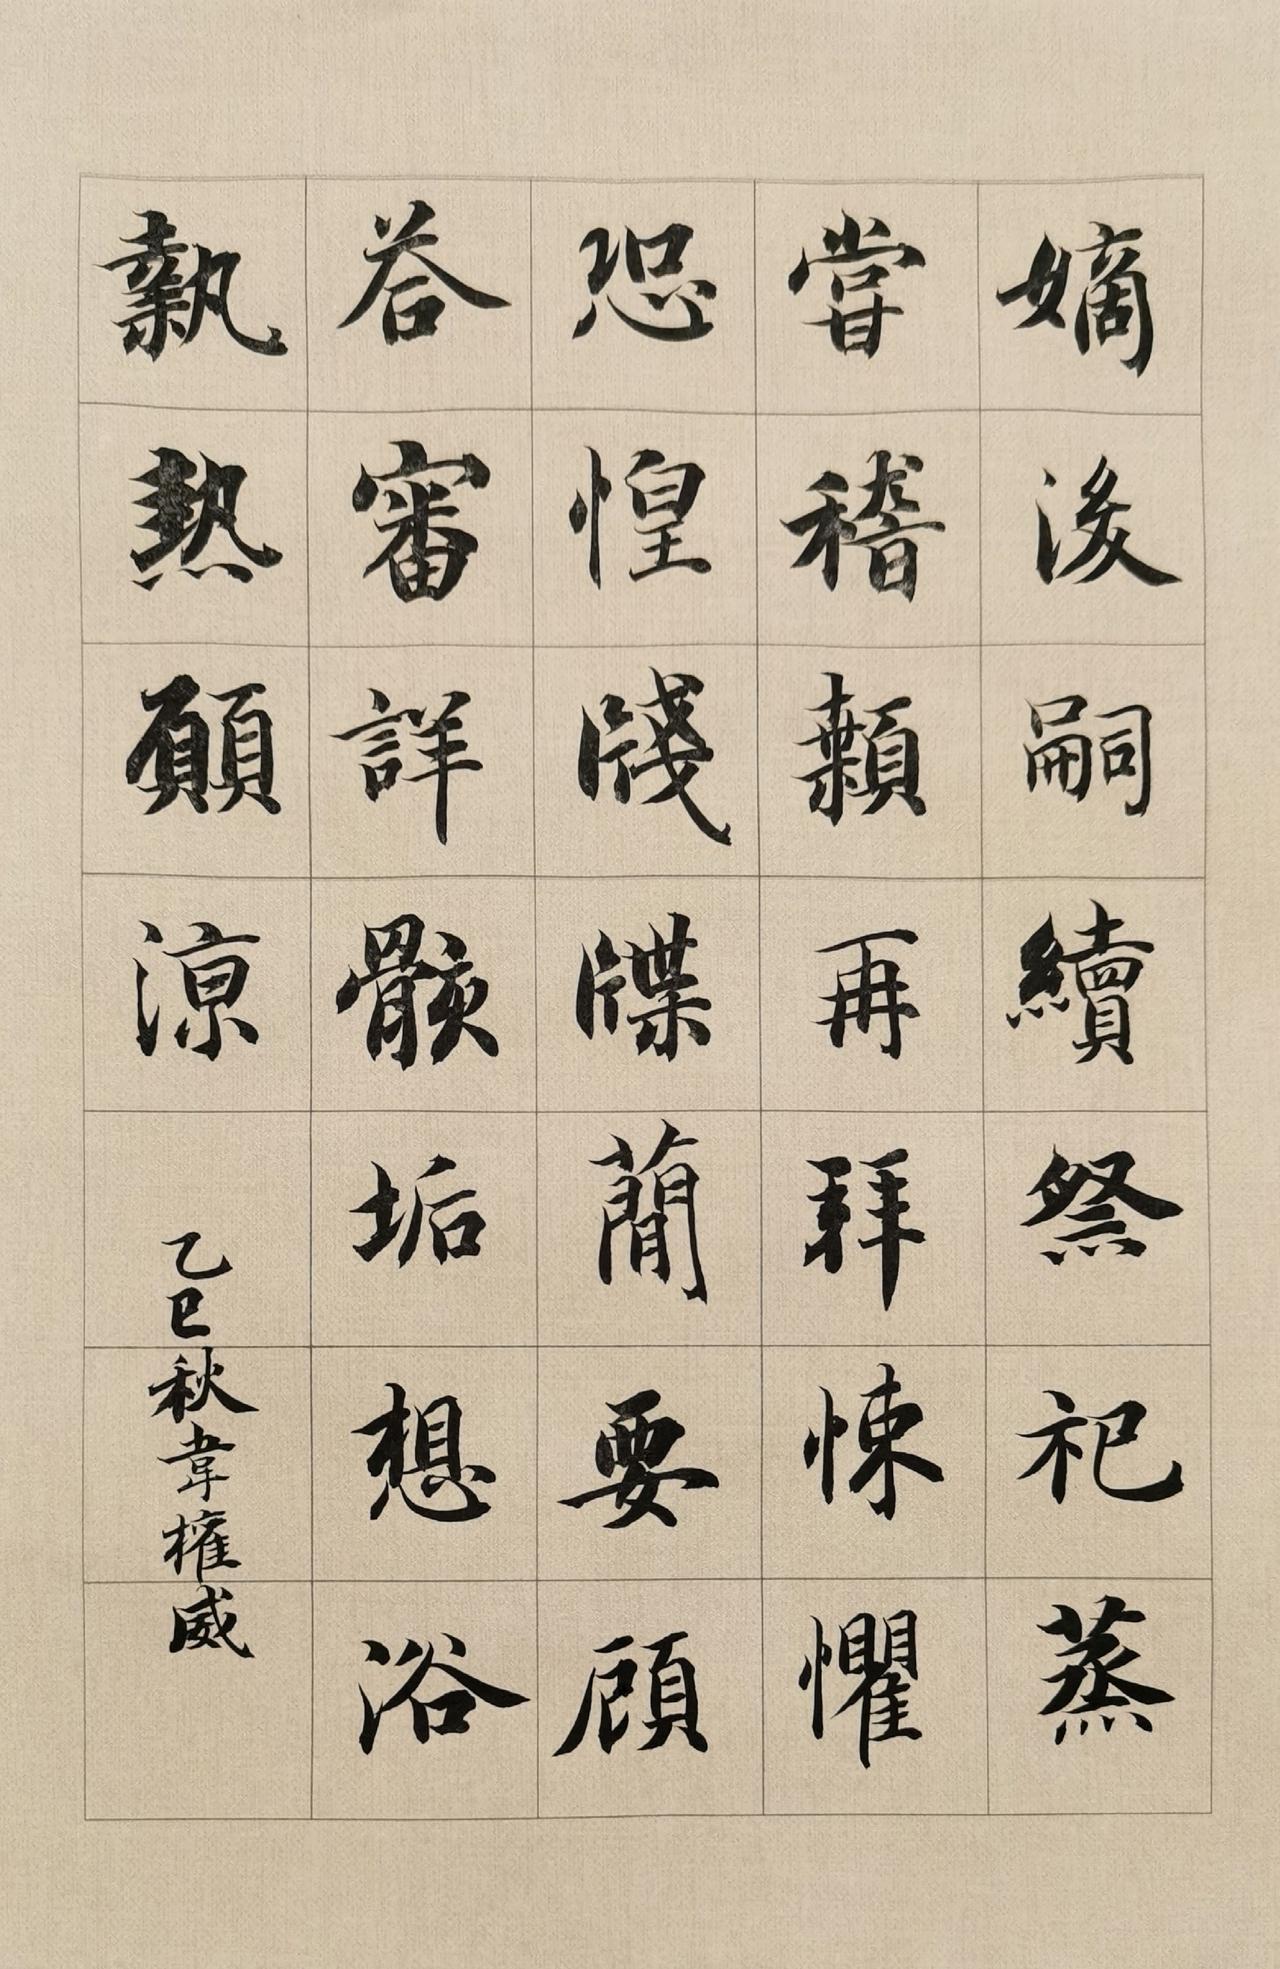 嫡後嗣續祭祀蒸
嘗稽顙再拜悚懼
恐惶牋牒簡要顧
答審詳骸垢想浴
執熱願涼
乙巳秋韋權威